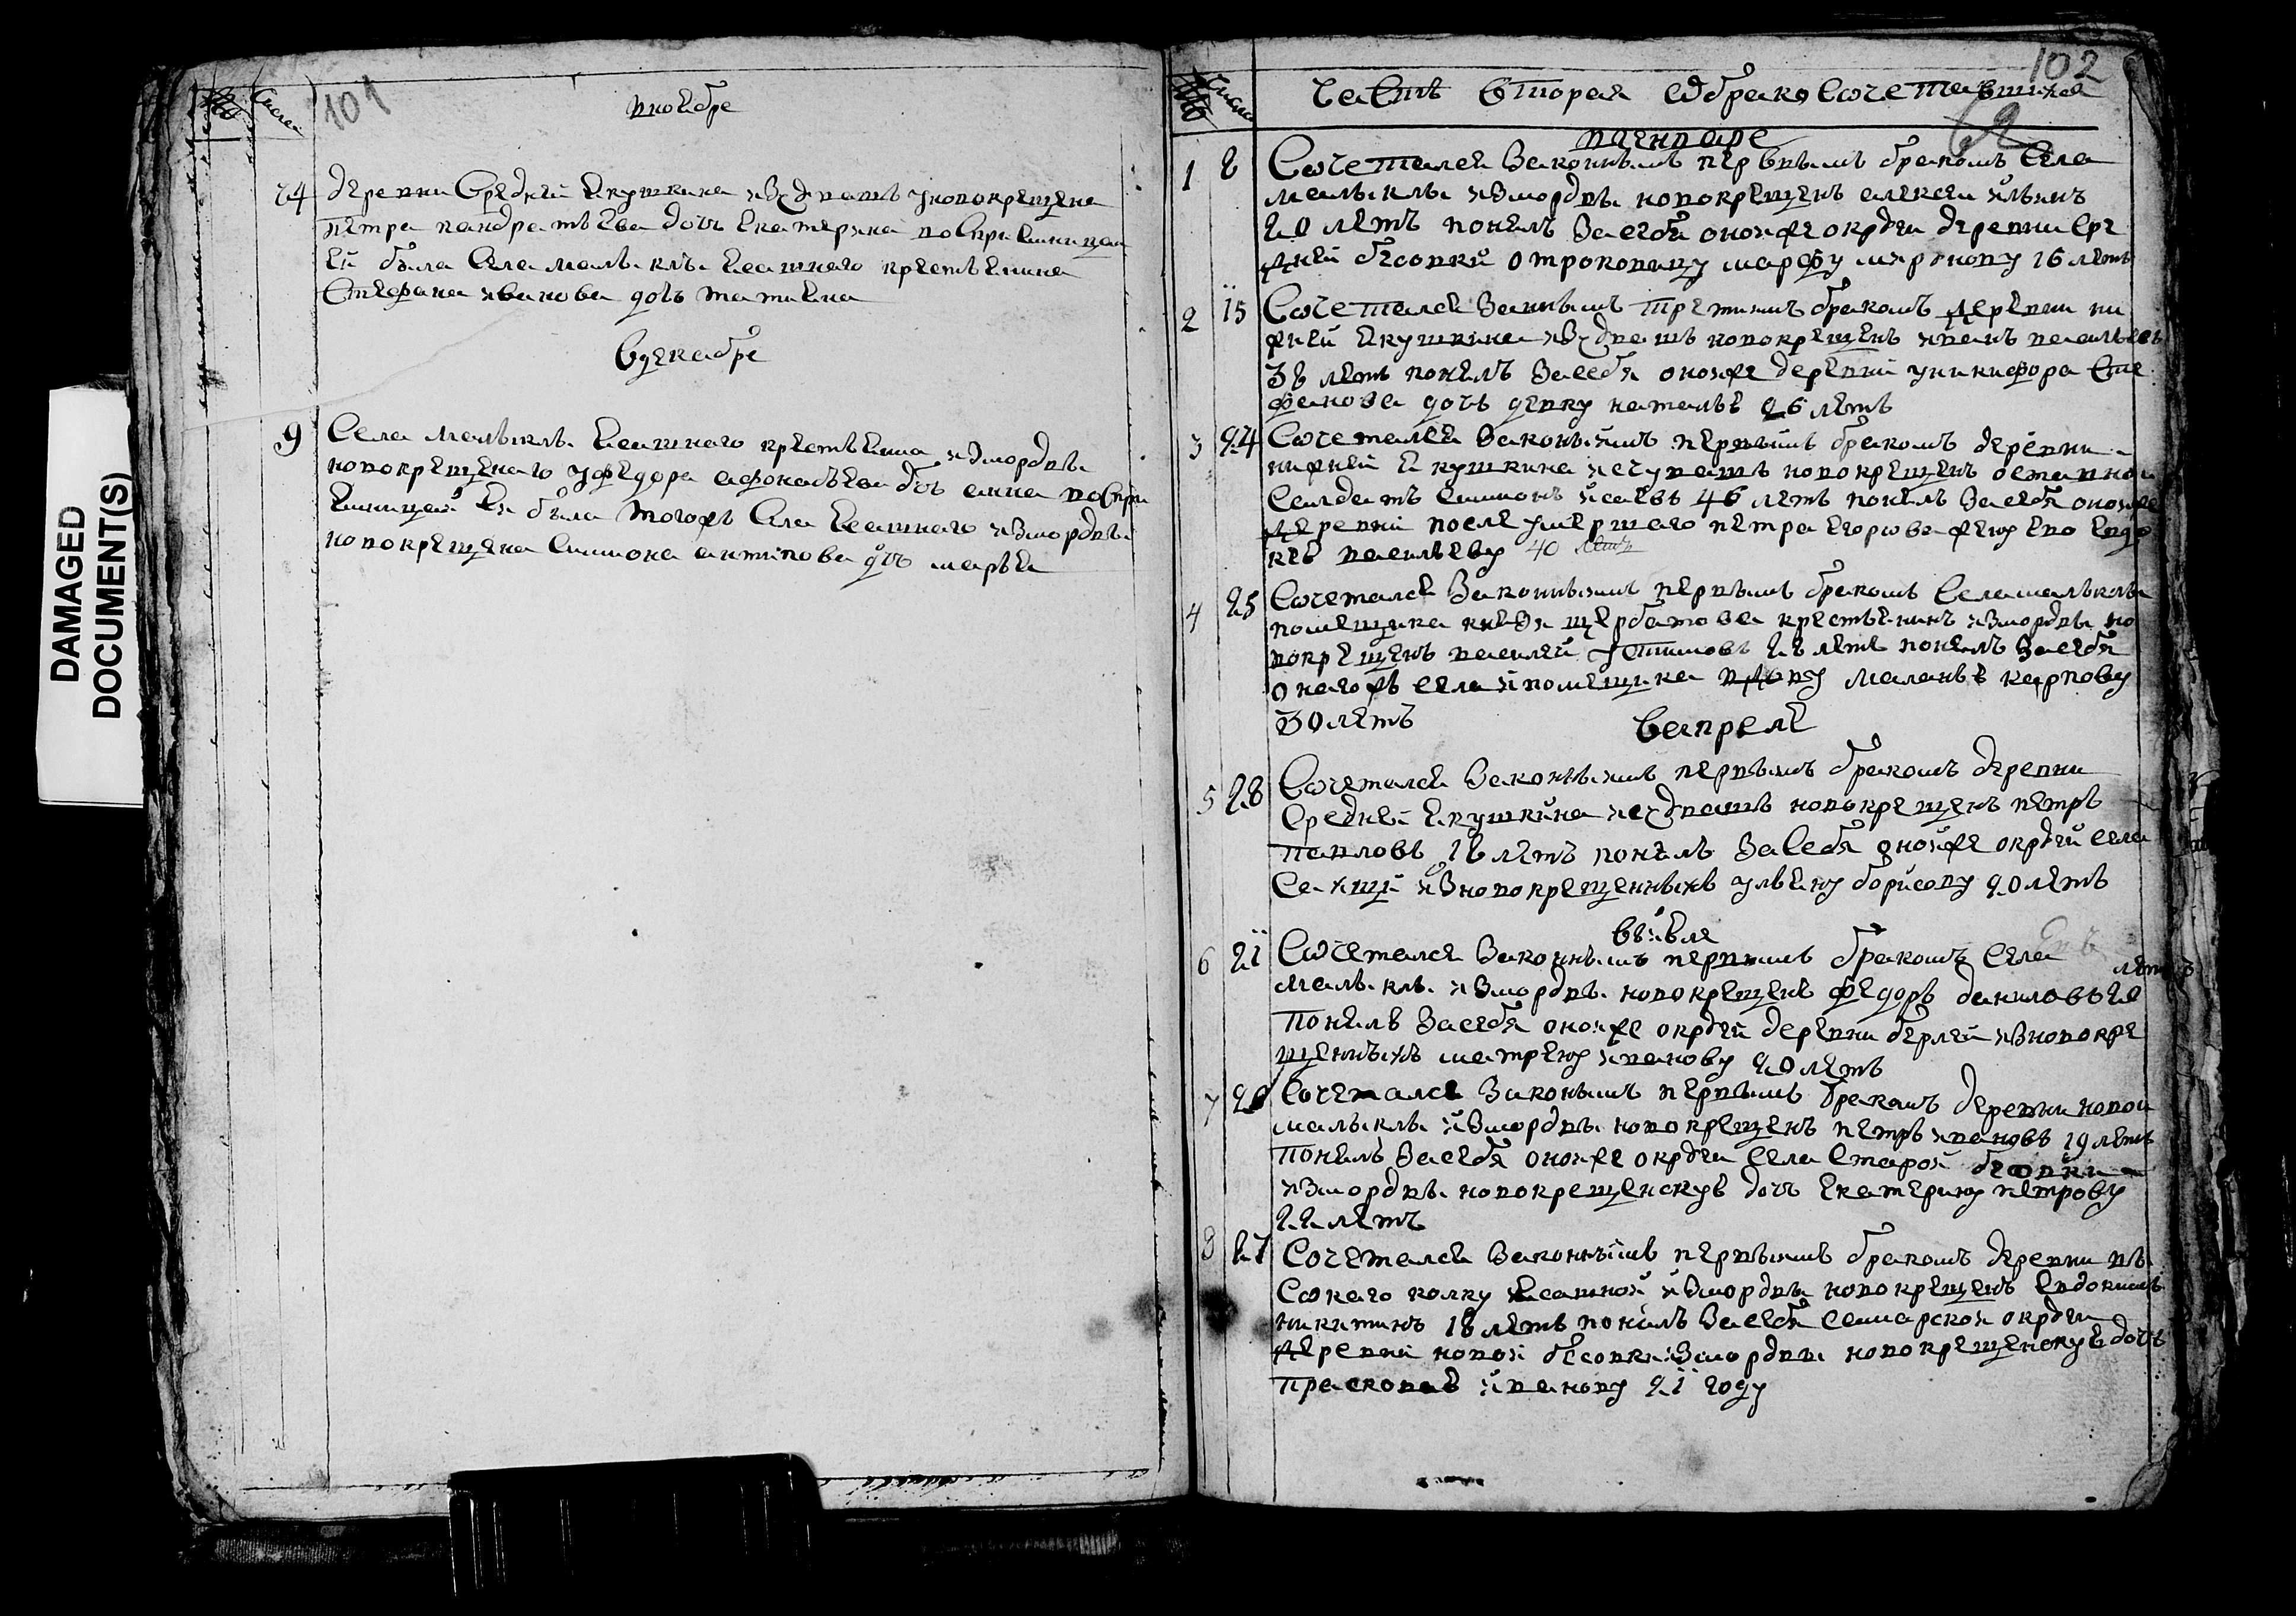 DAMAGED
DOCUMENT(S)
№
Числа
101
вноябре
24
деревни Средней Екушкина изчювашъ уновокрещена
Петра кандратьева дочь екатерина восприемницею
ей была Села малыклы ясашнаго крестьянина
Стефана иванова дочь татияна
Вдекабре
9
Села малыклы ясашнаго крестьянина измордвы
новокрещенаго уфедора афонасьева дочь анна воспри
емницей ея была тогожъ села ясашнаго измордвы
новокрещена симиона антипова дочь марья
№
Числа
102
Часть вторая обракосочетавшихся
вгенваре
1 2 Сочетался законнымъ первымъ бракомъ села
малыклы измордвы новокрещенъ алексеи ильинъ
20 летъ понялъ засебя оной же округи деревни сре
дней бесовки отроковицу марфу миронову 16 летъ
2 15 Сочетался законнымъ третимъ бракомъ деревни ни
жней екушкина изчювашъ новокрещенъ иванъ васильевъ
32 летъ понялъ засебя онойже деревни уникифора сте
фанова дочь девку наталью 26 летъ
3 24 Сочетался законнымъ первымъ бракомъ деревни
нижней екушкина исчувашъ новокрещенъ отставной
салдатъ симионъ исаевъ 46 летъ понялъ засебя онойже
деревни после умершаго петра егорова жену ево евдо
кею васильеву 40 летъ
4 25 Сочетался законнымъ первымъ бракомъ села малыклы
помещика князя щербатова крестьянинъ измордвы но
вокрещенъ василей устимовъ 22 летъ понялъ засебя
оногожъ села и помещика вдову маланью карпову
30 летъ
вапреле
5 28 Сочетался законнымъ первымъ бракомъ деревни
средней екушкина исчувашъ новокрещенъ петръ
павловъ 18 летъ понялъ засебя онойже округи села
изновокрещенныхъ ульяну борисову 20 летъ
вiюля
6 21 Сочетался законнымъ первымъ бракомъ села
малыклы измордвы новокрещенъ федоръ даниловъ 22 летъ
понялъ засебя онойже округи деревни изновокре
щенныхъ матрену иванову 20 летъ
7 Сочетался законнымъ первымъ бракомъ деревни новой
малыклы измордвы новокрещенъ петръ ивановъ 19 летъ
понялъ засебя онойже округи села старой бесовки
измордвы новокрещенскую дочь екатерину петрову
22 летъ
8 27 Сочетался законнымъ первымъ бракомъ деревни вы
сокаго колку ясашной измордвы новокрещенъ евдокимъ
никитинъ 18 летъ понялъ засебя самарской округи
деревни новой бесовки измордвы новокрещенскую дочь
прасковью иванову 21 году